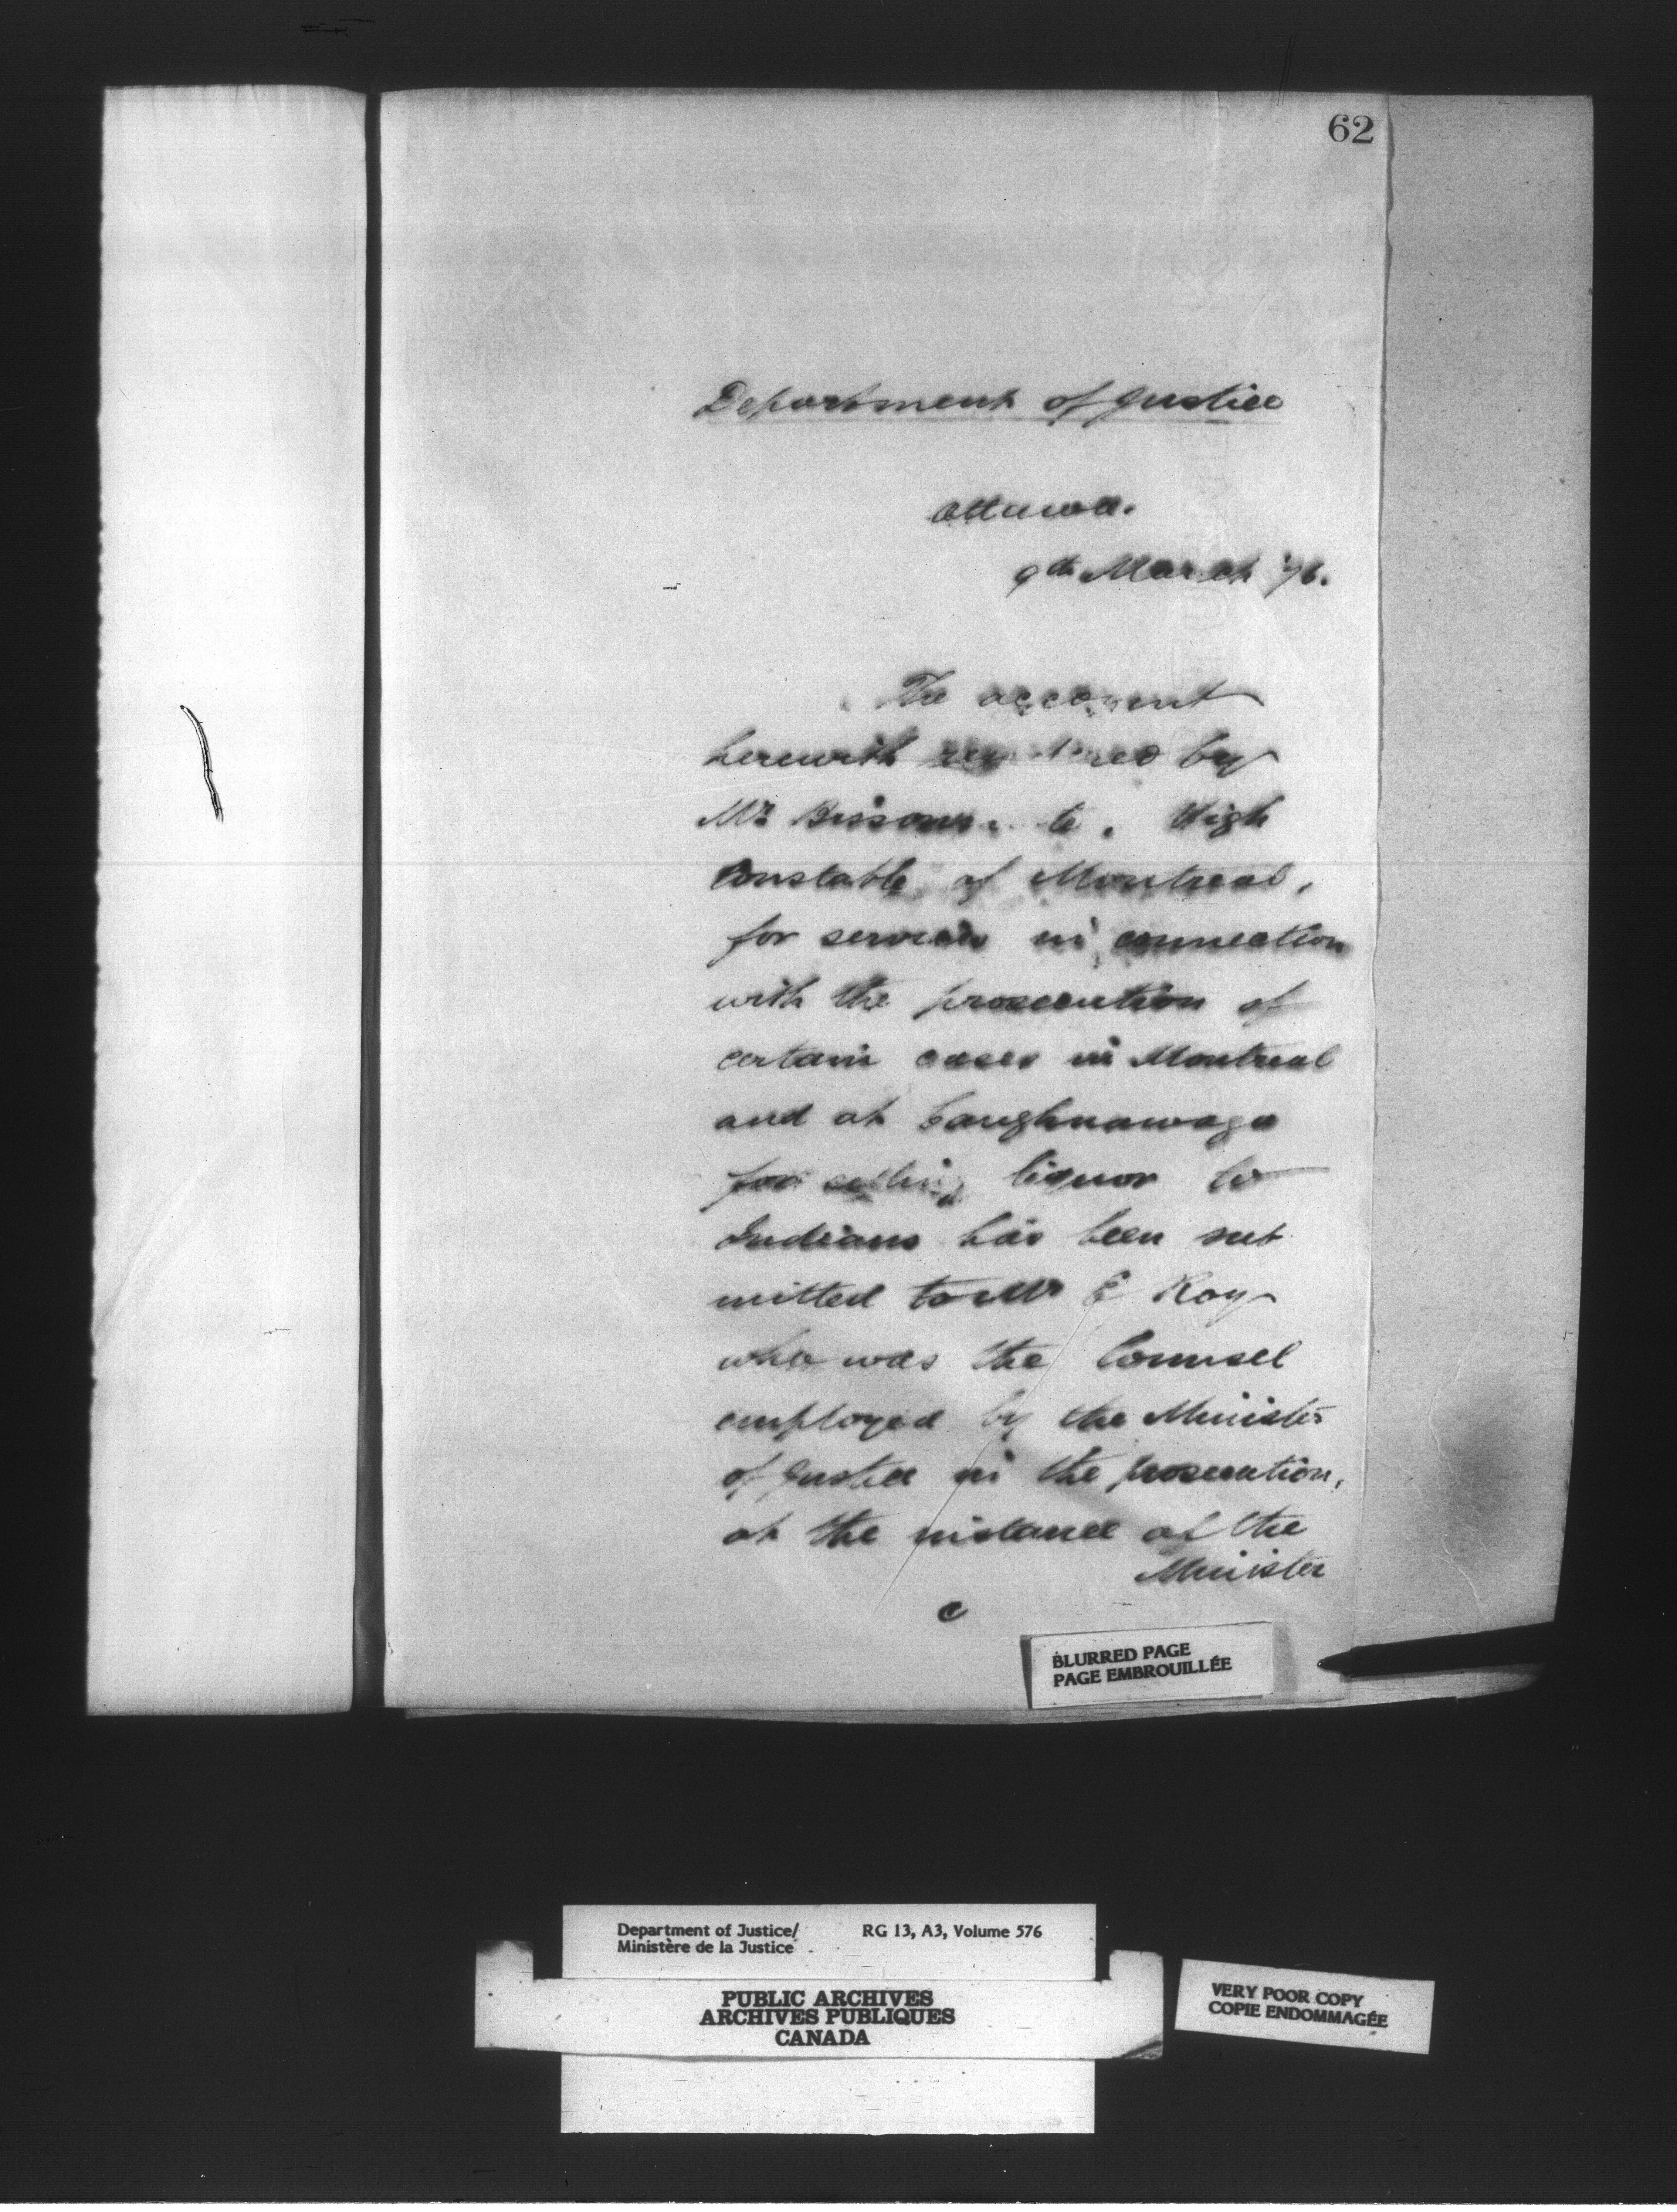 62
Department of Justice
Ottawa.
9th March '76.
The account
herewith rendered by
Mr Bissonnette, High
Constable of Montreal,
for services in connection
with the prosecution of
certain cases in Montreal
and at Caughnawaga
for selling liquor to
Indians has been sub
mitted to Mr E Roy
who was the Counsel
employed by the Minister
of Justice in the prosecution,
at the instance of the
Minister
C
BLURRED PAGE
PAGE EMBROUILLÉE
Department of Justice/ RG 13, A3, Volume 576
Ministère de la Justice
PUBLIC ARCHIVES
ARCHIVES PUBLIQUES
CANADA
VERY POOR COPY
COPIE ENDOMMAGÉE